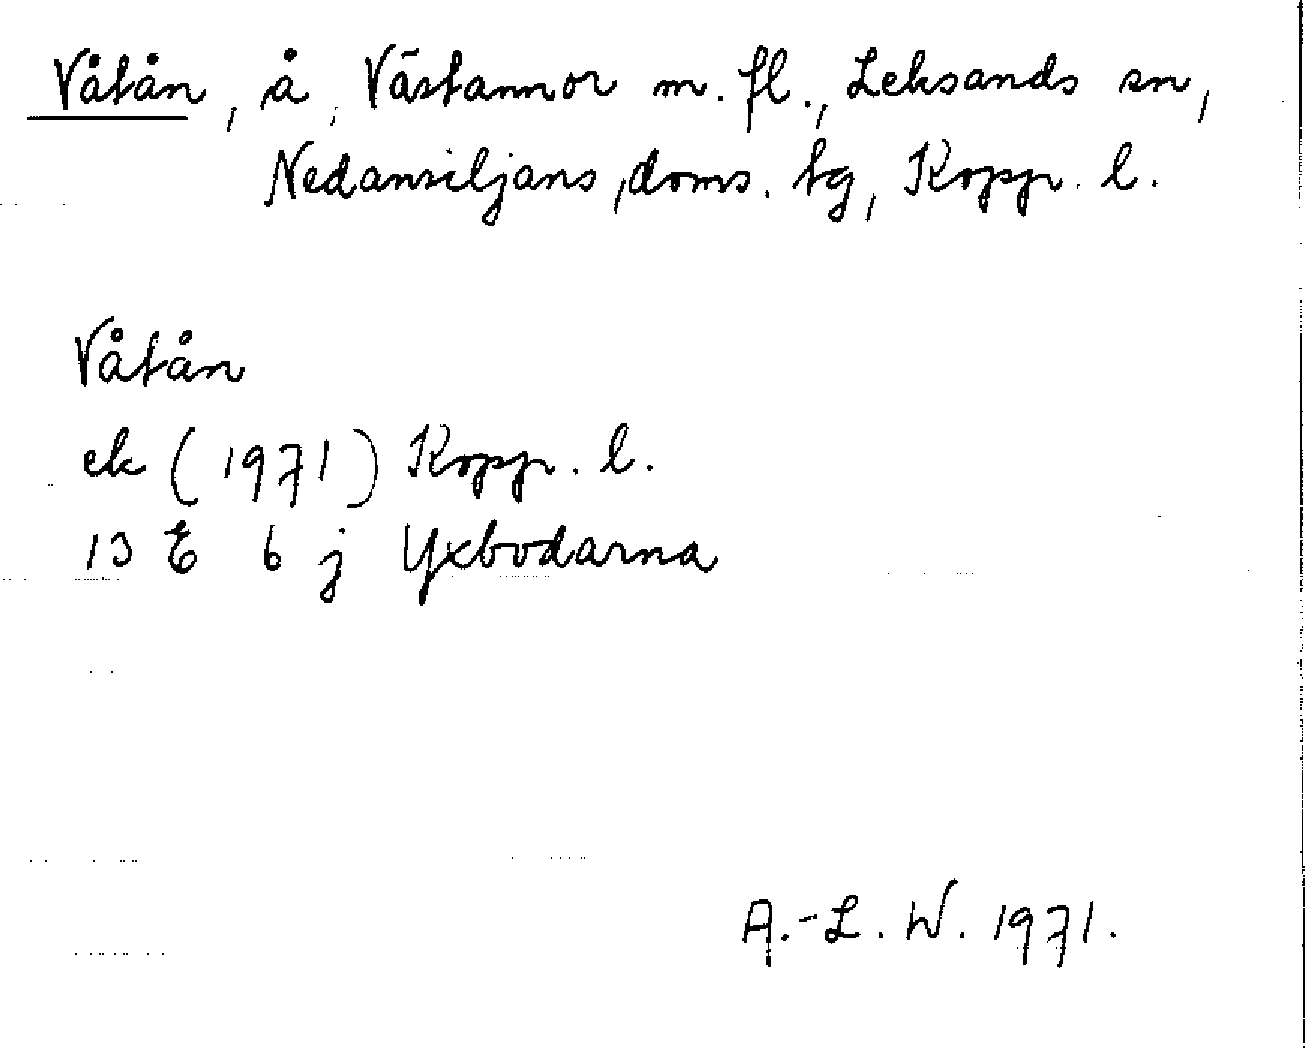 Våtån, å, Västannor m. fl., Leksands sn,
Nedansiljans, doms. tg, Kopp. l.
Våtån
ek (1971) Kopp. l.
13 E 6 j Yxbodarna
A.-L. W. 1971.